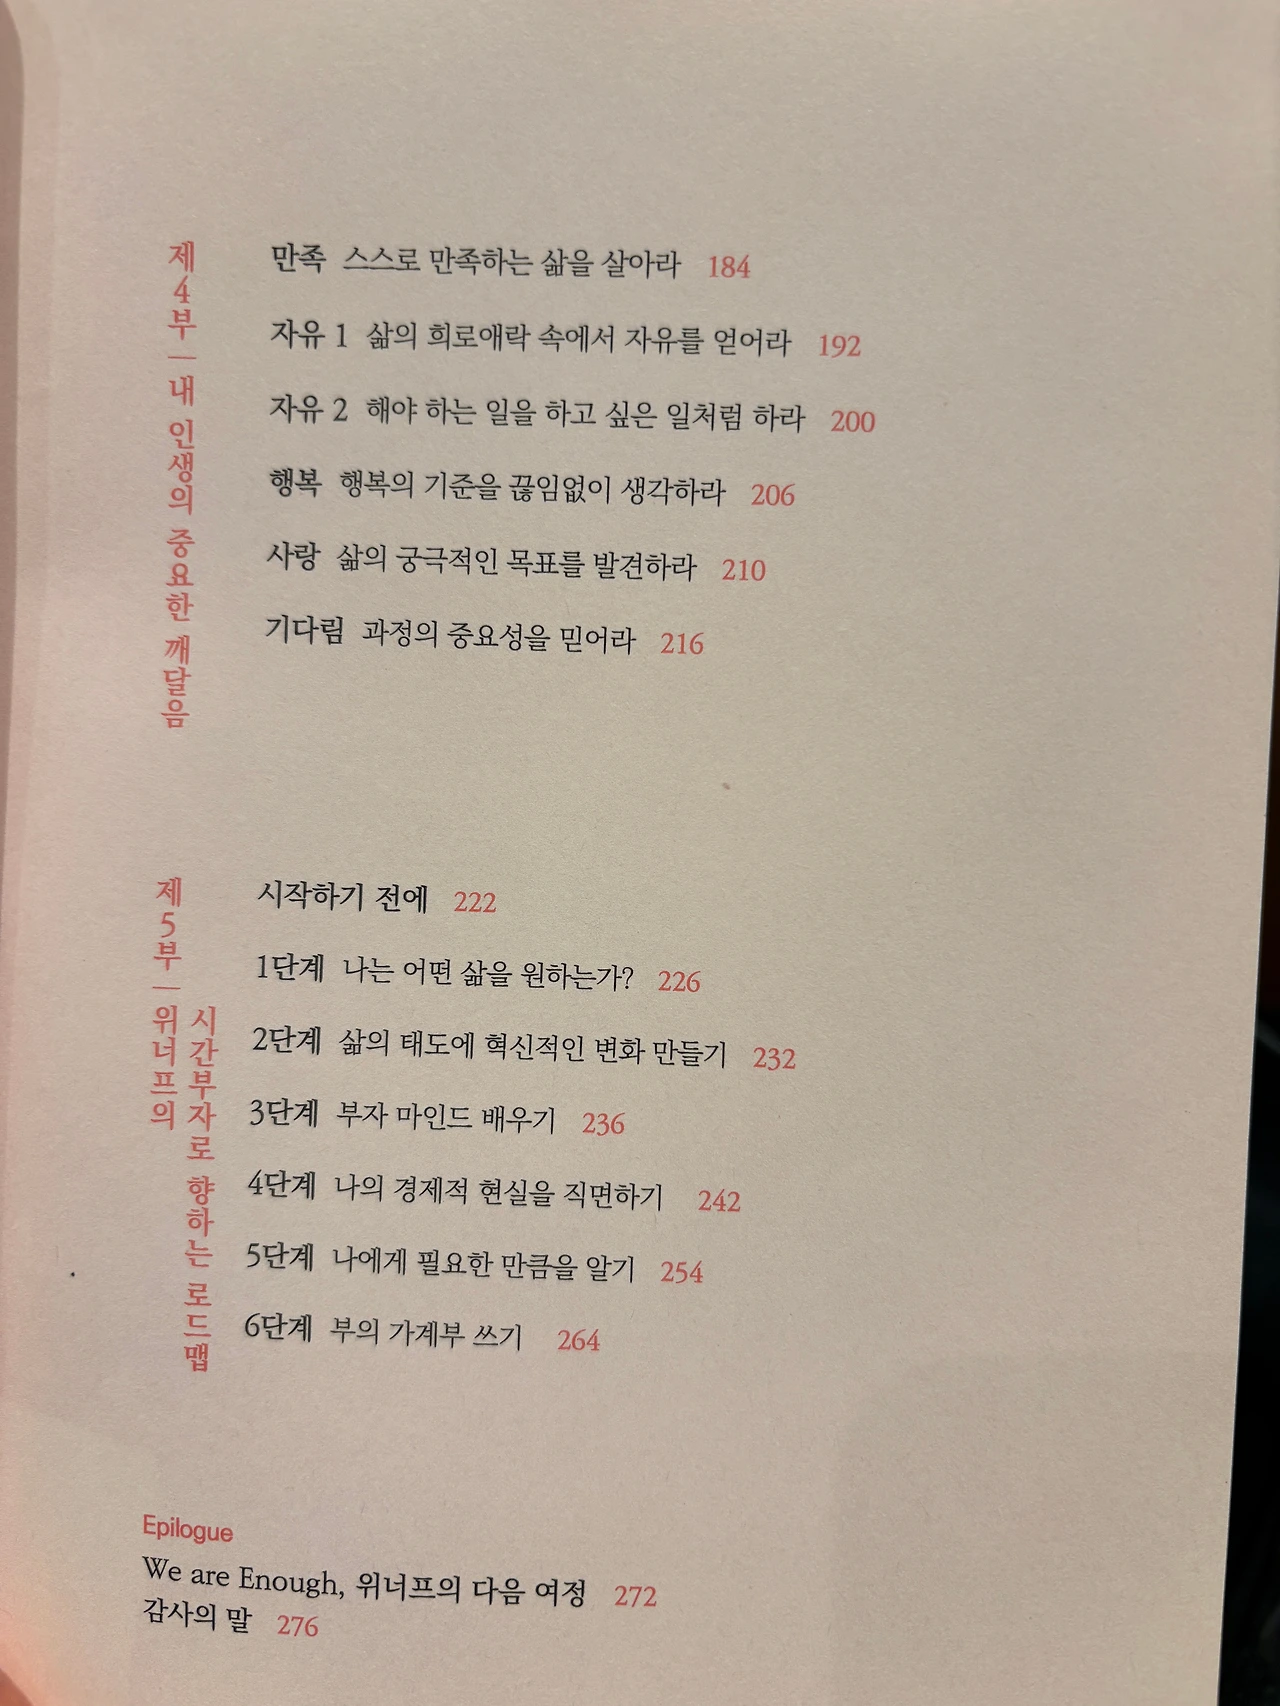 제4부 — 내 인생의 중요한 깨달음
만족 스스로 만족하는 삶을 살아라 184
자유 1 삶의 희로애락 속에서 자유를 얻어라 192
자유 2 해야 하는 일을 하고 싶은 일처럼 하라 200
행복 행복의 기준을 끊임없이 생각하라 206
사랑 삶의 궁극적인 목표를 발견하라 210
기다림 과정의 중요성을 믿어라 216
제5부 — 위너프의
시간부자로 향하는 로드맵
시작하기 전에 222
1단계 나는 어떤 삶을 원하는가? 226
2단계 삶의 태도에 혁신적인 변화 만들기 232
3단계 부자 마인드 배우기 236
4단계 나의 경제적 현실을 직면하기 242
5단계 나에게 필요한 만큼을 알기 254
6단계 부의 가계부 쓰기 264
Epilogue
We are Enough, 위너프의 다음 여정 272
감사의 말 276